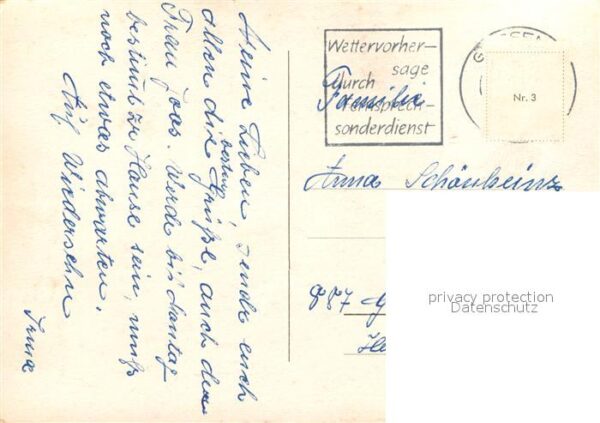 Meine Lieben, sende euch
allen die besten Grüße, auch der
Frau Joas. Werde bis Samstag
bestimmt zu Hause sein, muß
noch etwas abwarten.
Auf Wiedersehn
Irma
Wettervorher-
sage
durch
Fernsprech-
sonderdienst
GIESSEN
Nr. 3
Familie
Anna Schönheinz
privacy protection
Datenschutz